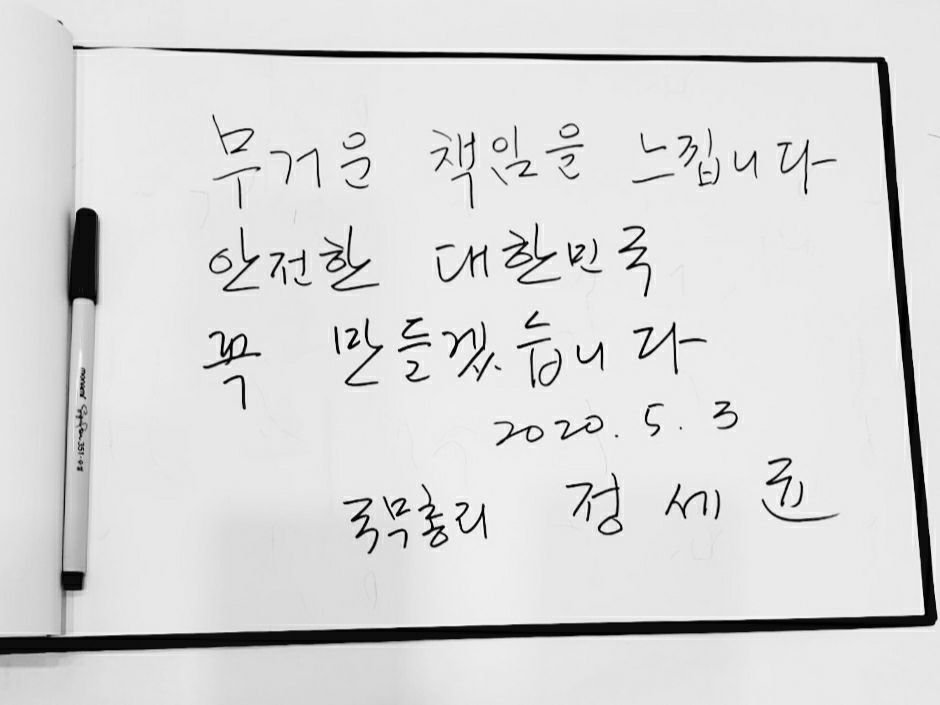 무거운 책임을 느낍니다
안전한 대한민국
꼭 만들겠습니다
2020. 5. 3
국무총리 정세균
monami
351